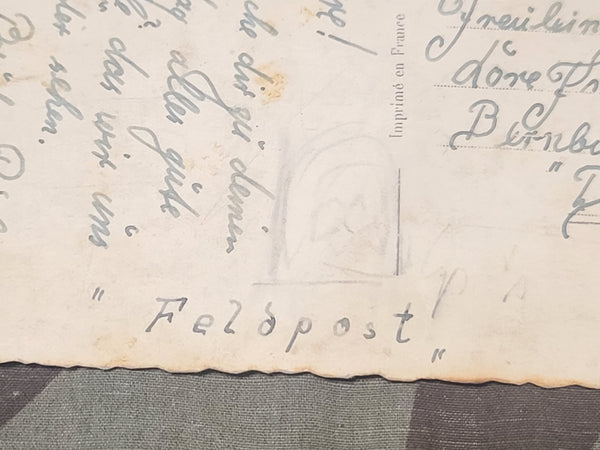 ne!
che dir zu deinem
ag alles gute
das wir uns
der sehen.
Imprimé en France
Fräulein
Bernbu
" Feldpost "